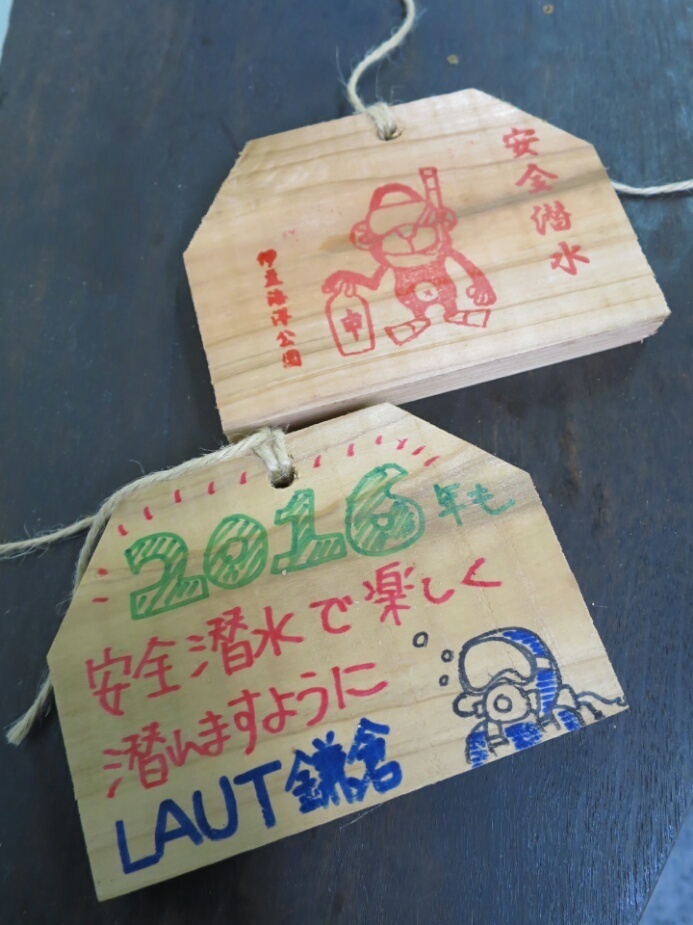 安全潜水
申
伊豆海洋公園
2016年も
安全潜水で楽しく
潜れますように
LAUT鎌倉